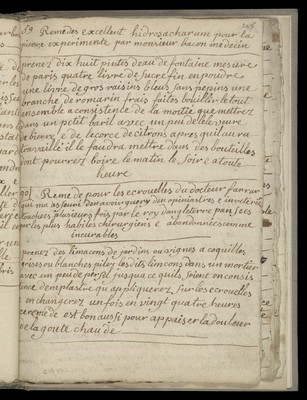 89 Remedes excellent hidrosacharum pour la
pierre experimenté par monsieur bacon medecin
prenez dix huit pintes deau de fontaine mesure
de paris quatre livre de sucre fin en poudre
une livre de gros raisins bleus sans pepins une
branche de romarin frais faites bouillir le tout
ensemble a consistente de la moitié que mettrez
dans un petit baril avec un peu de levessure
de biere et de lecorce de citrons apres quil aura
travaillé il le faudra mettre dans des bouteilles
dont pourrez boire le matin le soir a toute
heure
90 Remede pour les ecrouelles du docteur farrar
qui ma assuré den avoir guery des opiniastres e inveterés
touchees plusieurs fois par le roy dangleterre pansees
par les plus habiles chirurgiens e abandonnés comme
incurables
prenez des limaçons de jardins ou vignes a coquilles
grises ou blanches pilez les dits limçons dans un mortier
avec un peu de persil jusqua ce quils soient en consis
tance demplastre qu appliquerez sur les ecrouelles
en changerez un fois en vingt quatre heures
ce remede est bon aussi pour appaiser la douleur
de la goute chaude